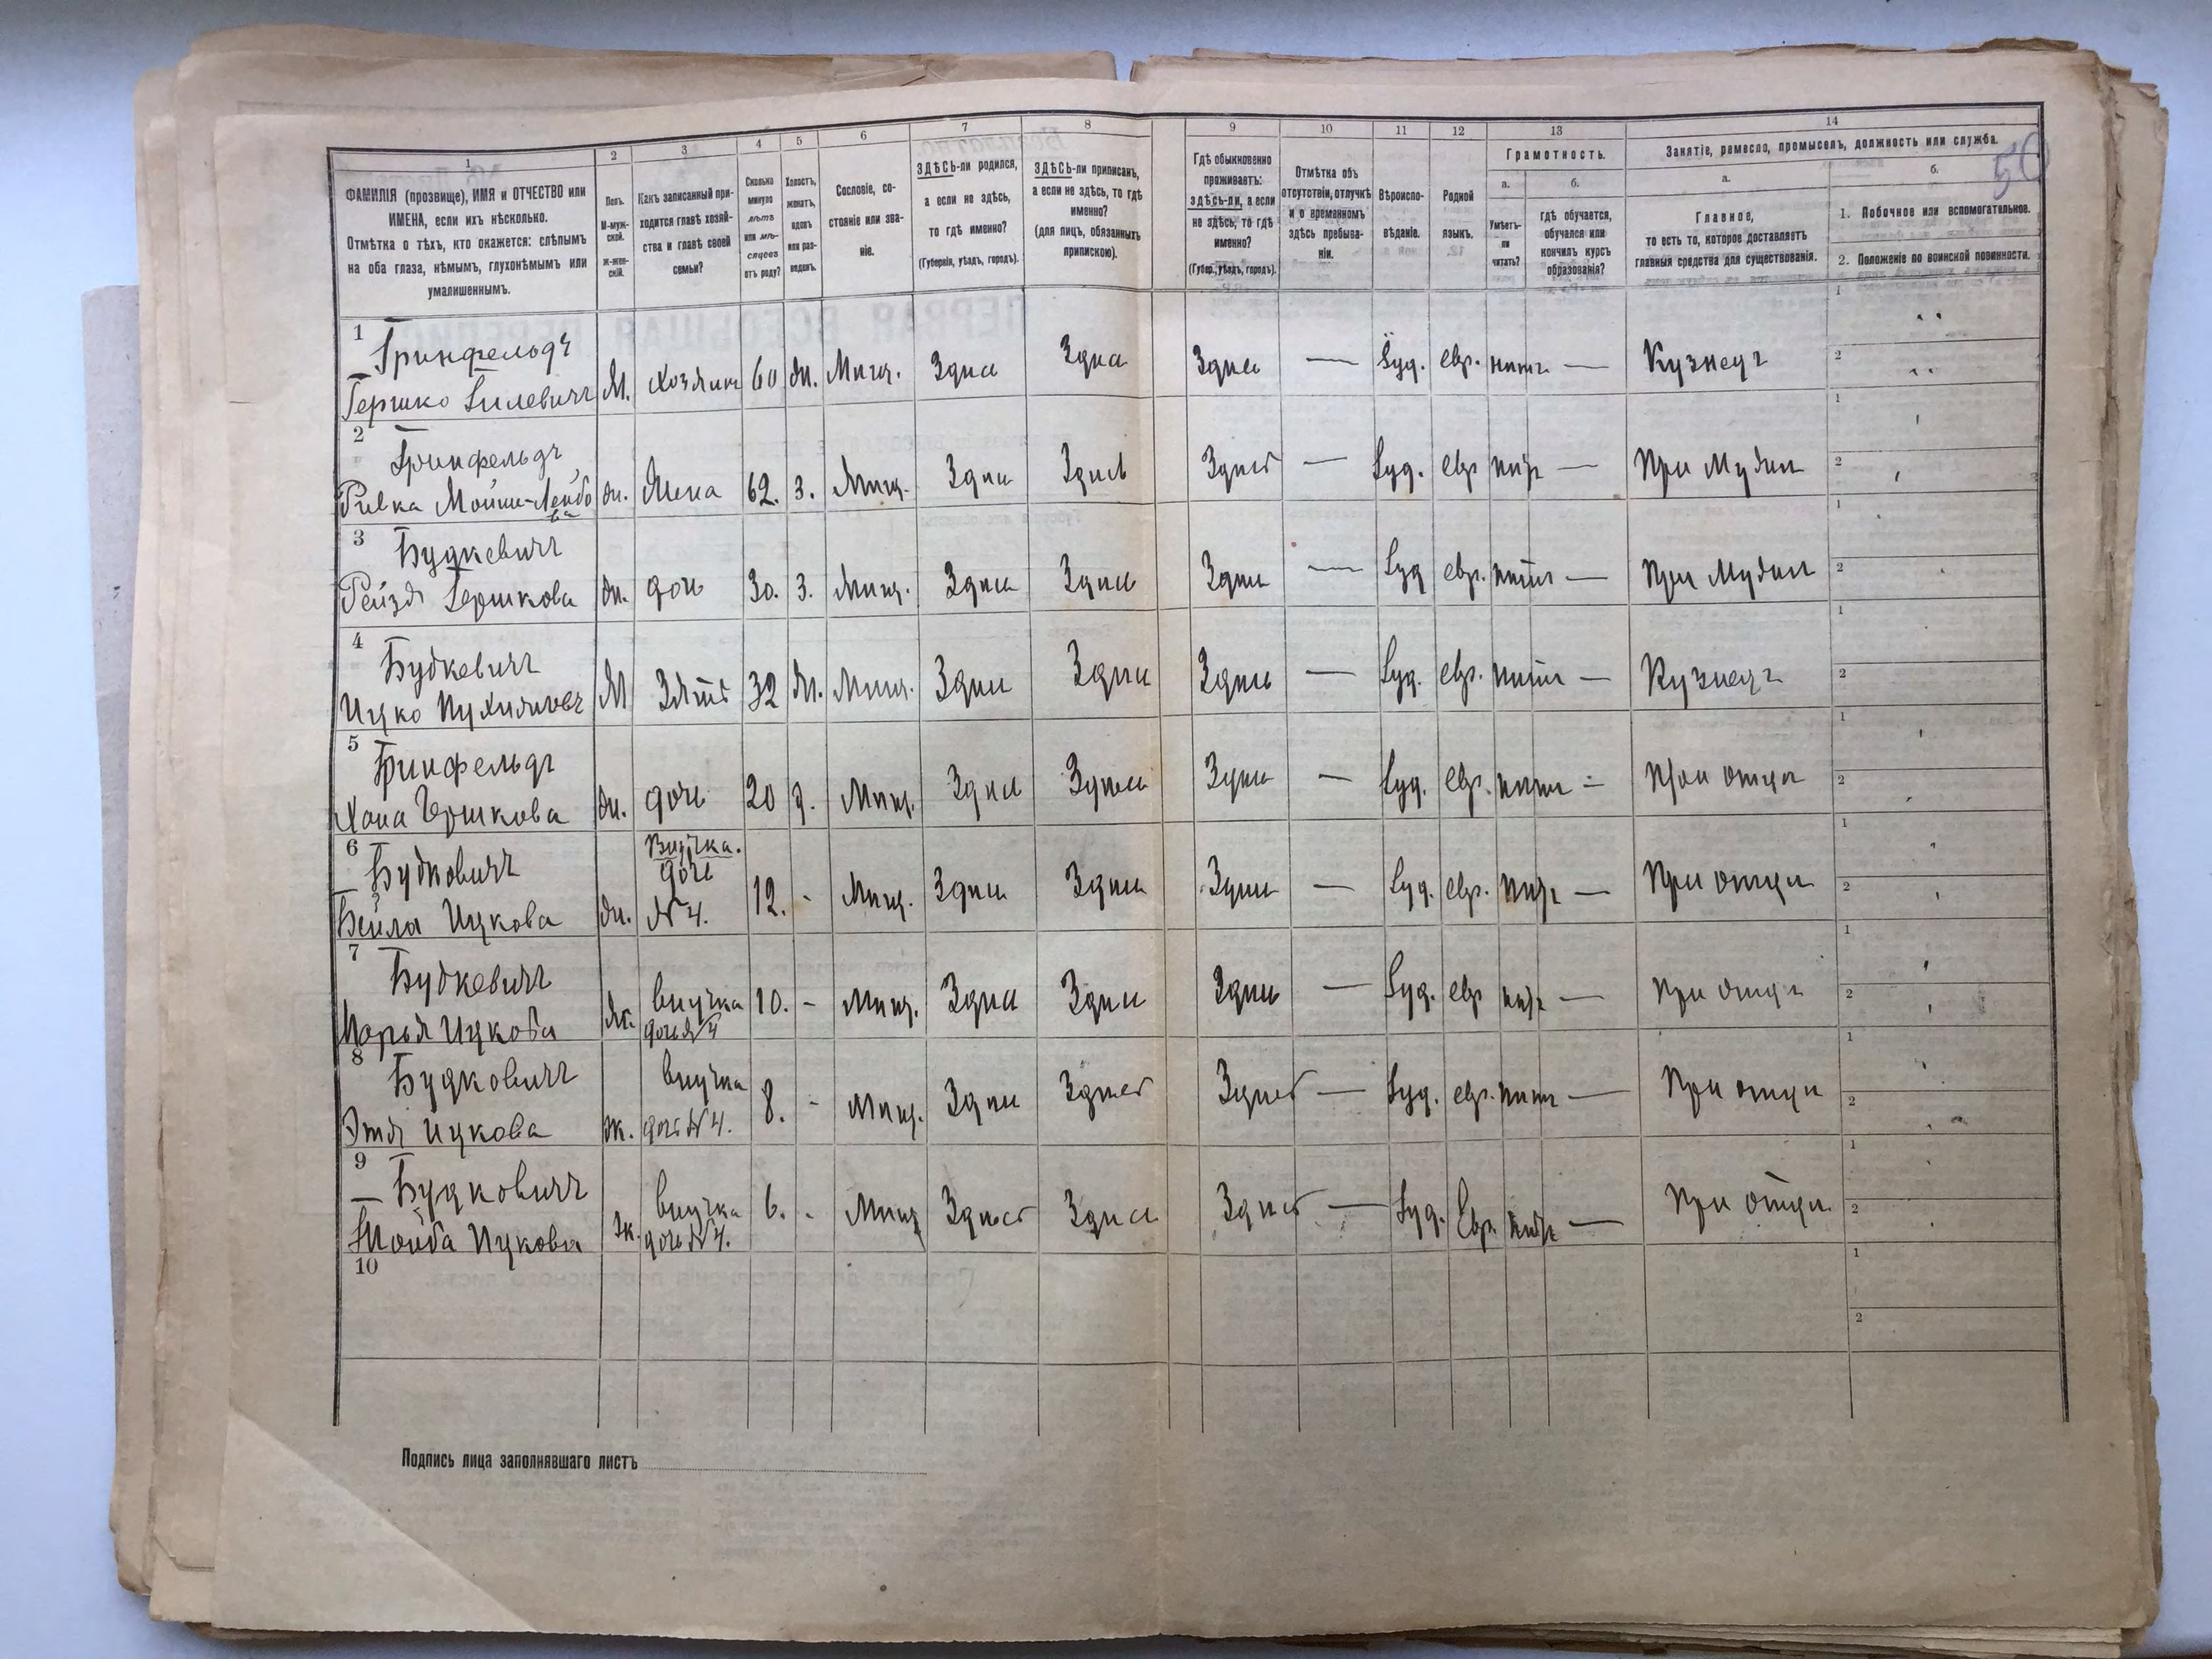 1 2 3 4 5 6 7 8 9 10 11 12 13 14
ФАМИЛІЯ (прозвище), ИМЯ и ОТЧЕСТВО или
ИМЕНА, если ихъ нѣсколько.
Отмѣтка о тѣхъ, кто окажется: слѣпымъ
на оба глаза, нѣмымъ, глухонѣмымъ или
умалишеннымъ.
Полъ.
М-муж-
ской.
ж-жен-
скій.
Какъ записанный при-
ходится главѣ хозяй-
ства и главѣ своей
семьи?
Сколько
минуло
лѣтъ
или мѣ-
сяцевъ
отъ роду?
Холостъ,
женатъ,
вдовъ
или раз-
веденъ.
Сословіе, со-
стояніе или зва-
ніе.
ЗДѢСЬ-ли родился,
а если не здѣсь,
то гдѣ именно?
(Губернія, уѣздъ, городъ).
ЗДѢСЬ-ли приписанъ,
а если не здѣсь, то гдѣ
именно?
(для лицъ, обязанныхъ
припискою).
Гдѣ обыкновенно
проживаетъ:
здѣсь-ли, а если
не здѣсь, то гдѣ
именно?
(Губер., уѣздъ, городъ).
Отмѣтка объ
отсутствіи, отлучкѣ
и о временномъ
здѣсь пребыва-
ніи.
Вѣроиспо-
вѣданіе.
Родной
языкъ.
Грамотность.
а.
Умѣетъ-
ли
читать?
б.
гдѣ обучается,
обучался или
кончилъ курсъ
образованія?
Занятіе, ремесло, промыселъ, должность или служба.
а.
Главное,
то есть то, которое доставляетъ
главныя средства для существованія.
б.
1. Побочное или вспомогательное.
2. Положеніе по воинской повинности.
50
1 Гринфельдъ
Гершко М. Хозяинъ 60 ж. Мѣщ. Здѣсь Здѣсь Здѣсь — Іуд. евр. нѣтъ — Кузнецъ 1 2
2 Гринфельдъ
Ривка Мойше-Лейбо
ва ж. Жена 62. з. Мѣщ. Здѣсь Здѣсь Здѣсь — Іуд. евр нѣтъ — При Мужѣ 1 2
3 Будкевичъ
Рейзя Гершкова ж. дочь 30. з. Мѣщ. Здѣсь Здѣсь Здѣсь — Іуд евр. нѣтъ — При Мужѣ 1 2
4 Будкевичъ
Ицко М Зять 32 ж. Мѣщ. Здѣсь Здѣсь Здѣсь — Іуд. евр. нѣтъ — Кузнецъ 1 2
5 Гринфельдъ
Хана Гершкова ж. дочь 20 д. Мѣщ. Здѣсь Здѣсь Здѣсь — Іуд. евр. нѣтъ — При отцѣ 1 2
6 Будковичъ
Внучка.
дочь
Бейла Ицкова ж. №4. 12. - Мѣщ. Здѣсь Здѣсь Здѣсь — Іуд. евр. нѣтъ — При отцѣ 1 2
7 Будкевичъ
Марья Ицкова ж. внучка
дочь №4 10. - Мѣщ. Здѣсь Здѣсь Здѣсь — Іуд. евр нѣтъ — При отцѣ 1 2
8 Будковичъ
Этя Ицкова ж. внучка
дочь №4. 8. - Мѣщ. Здѣсь Здѣсь Здѣсь — Іуд. евр. нѣтъ — При отцѣ 1 2
9 Будковичъ
Ицкова ж. внучка
дочь №4. 6. - Мѣщ Здѣсь Здѣсь Здѣсь — Іуд. Евр. нѣтъ — При отцѣ 1 2
10 1 2
Подпись лица заполнявшаго листъ